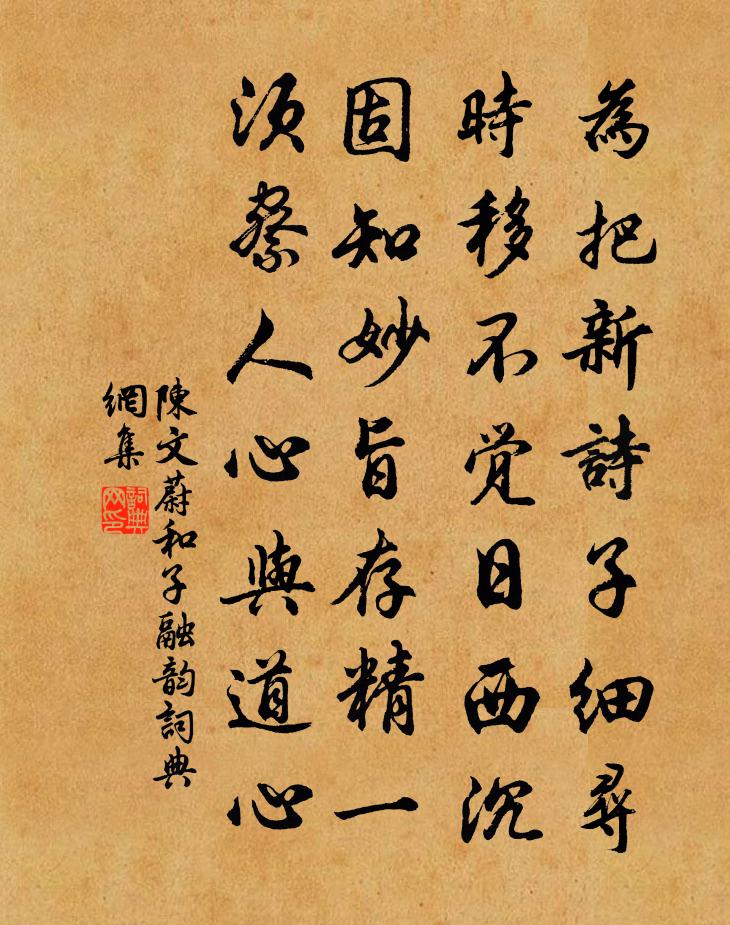 為把新詩子細尋
時移不覺日西沉
固知妙旨存精一
須察人心與道心
陳文蔚和子融韵詞典
網集
詞典網印